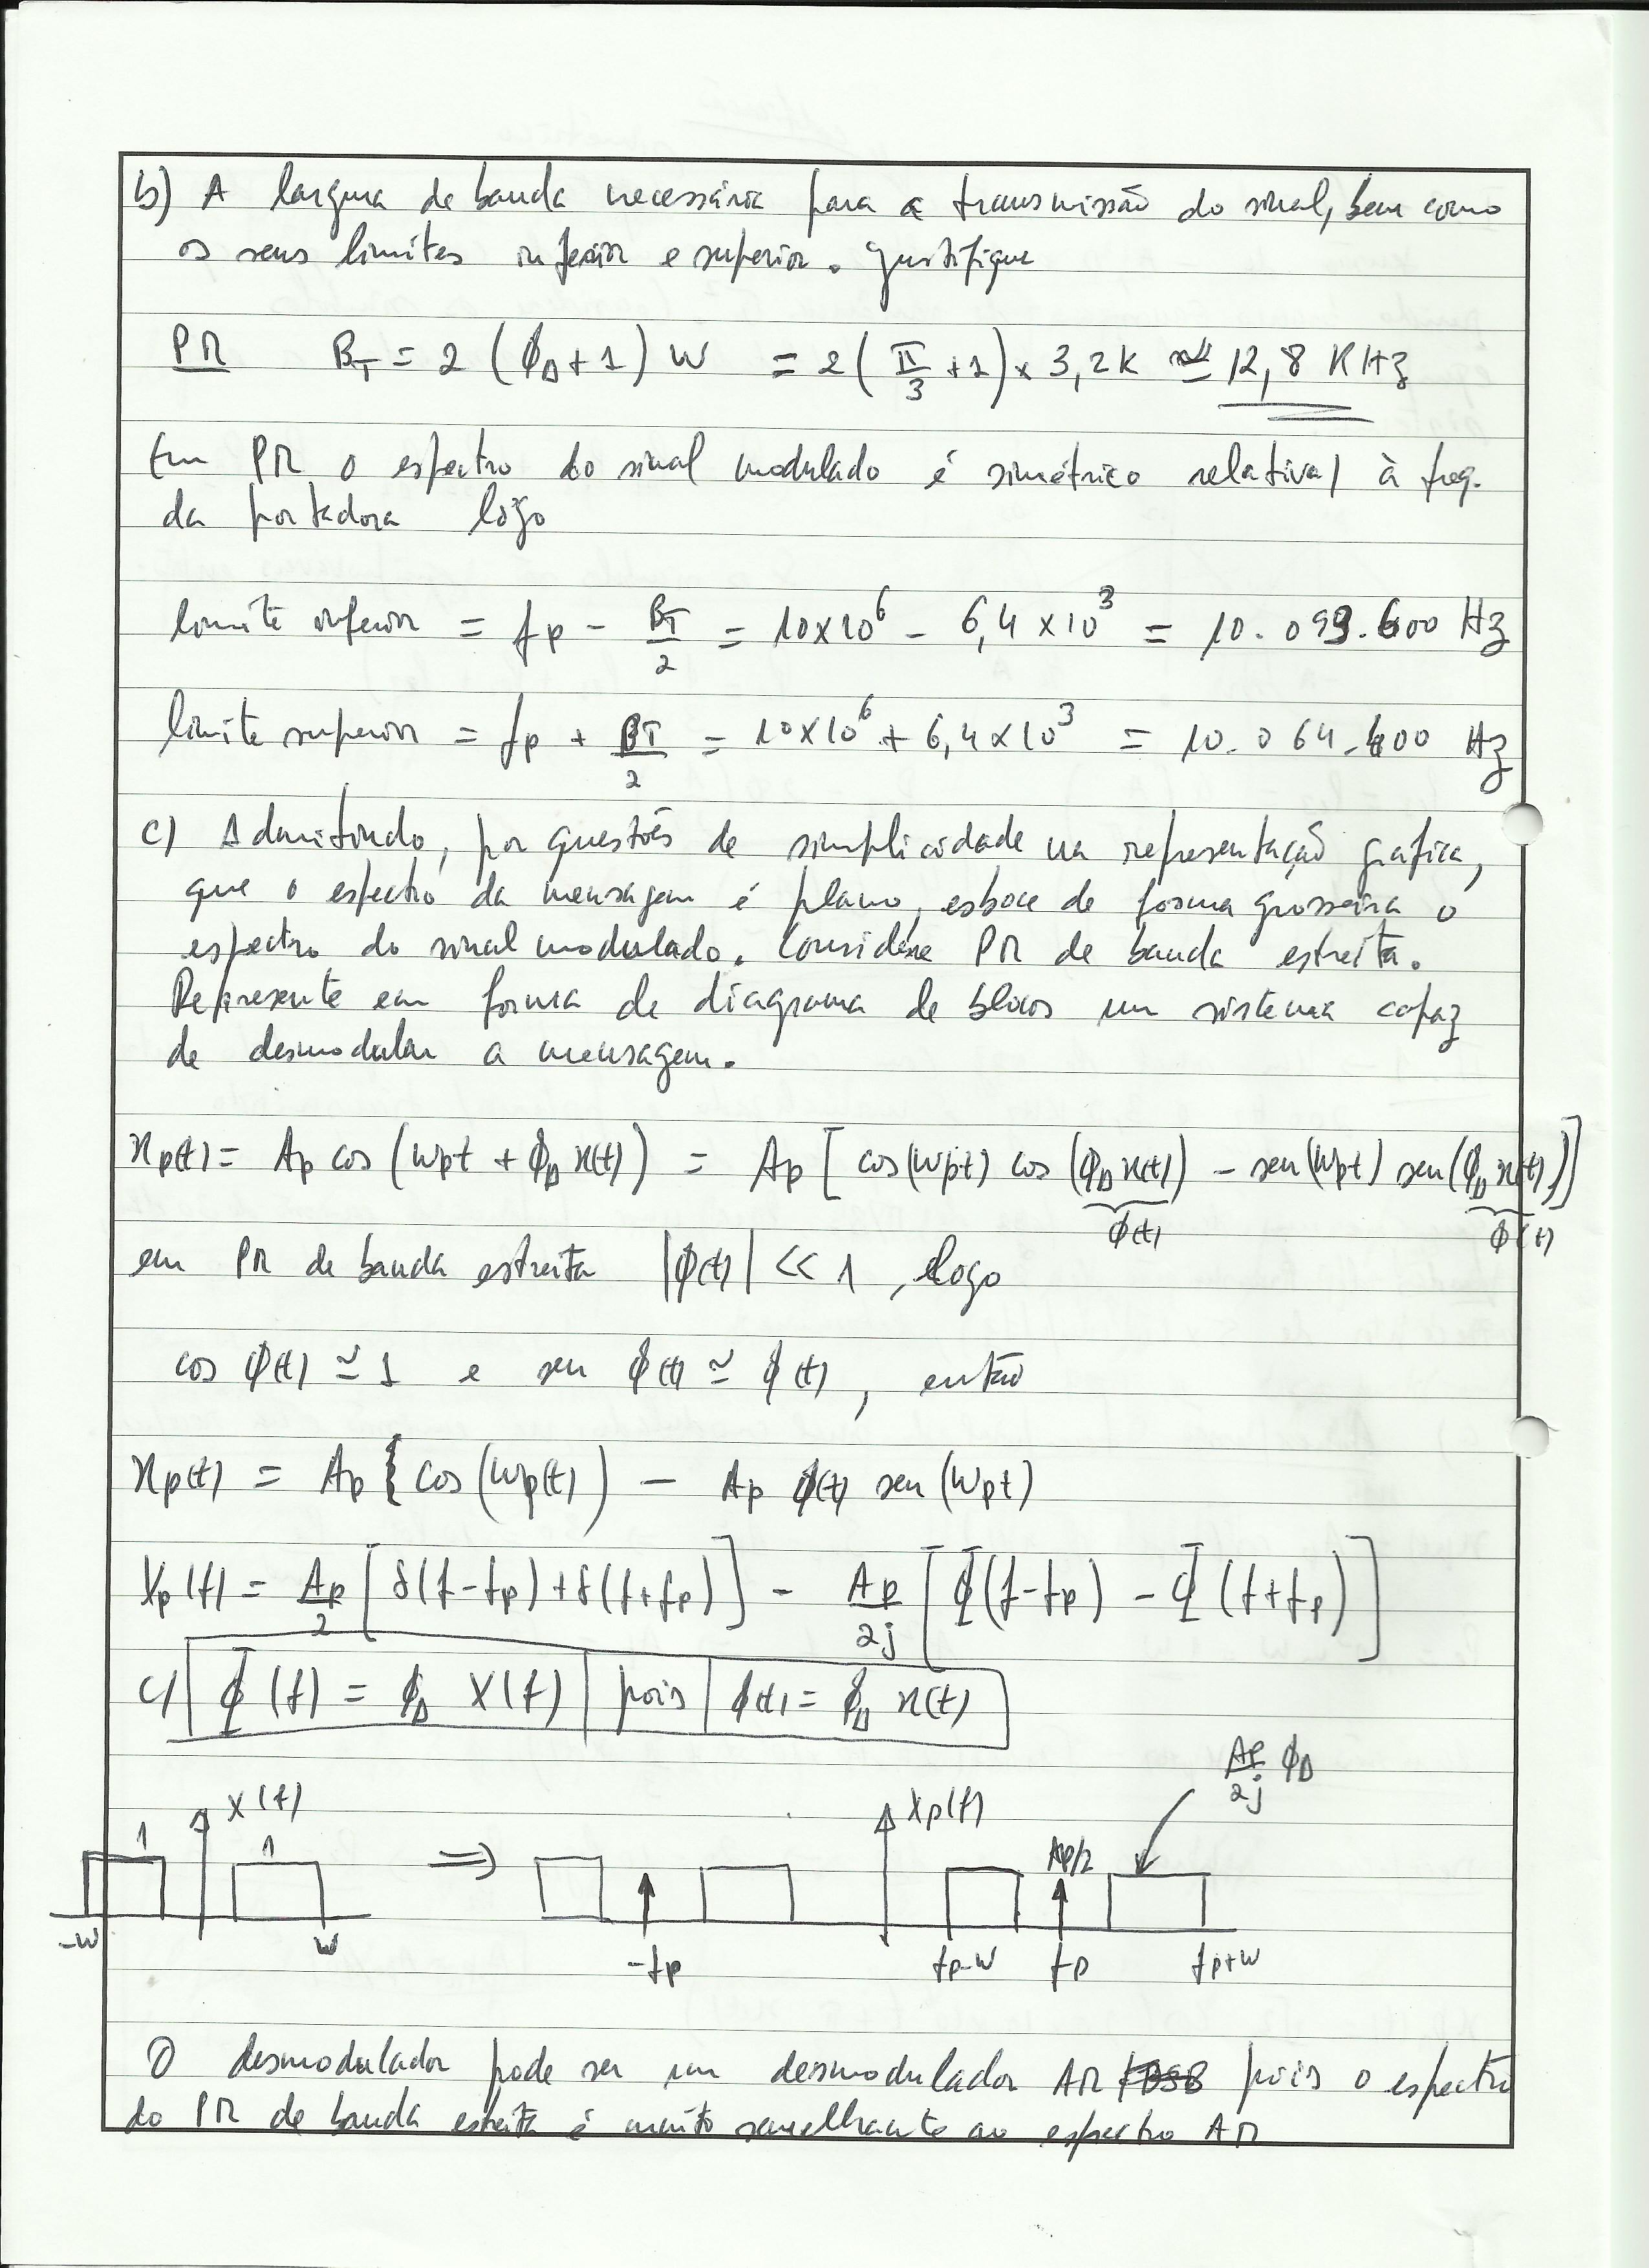 b) A largura de banda necessária para a transmissão do sinal, bem como
os seus limites inferior e superior. Justifique
PM B_T = 2 (ϕ_Δ + 1) W = 2 (π/3 + 1) × 3,2K ≃ 12,8 KHz
Em PM o espectro do sinal modulado é simétrico relativa/ à freq.
da portadora logo
limite inferior = fp - B_T/2 = 10×10^6 - 6,4×10^3 = 10.099.600 Hz
limite superior = fp + B_T/2 = 10×10^6 + 6,4×10^3 = 10.064.400 Hz
c) Admitindo, por questões de simplicidade na representação gráfica,
que o espectro da mensagem é plano, esboce de forma grosseira o
espectro do sinal modulado. Considere PM de banda estreita.
Represente em forma de diagrama de blocos um sistema capaz
de desmodular a mensagem.
xp(t) = Ap cos (wpt + ϕ_Δ x(t)) = Ap [cos(wpt) cos (ϕ_Δ x(t)) - sen(wpt) sen(ϕ_Δ x(t))]
ϕ(t) ϕ(t)
em PM de banda estreita |ϕ(t)| << 1, logo
cos ϕ(t) ≃ 1 e sen ϕ(t) ≃ ϕ(t), então
xp(t) = Ap cos (wp(t)) - Ap ϕ(t) sen (wpt)
Xp(f) = Ap/2 [δ(f-fp) + δ(f+fp)] - Ap/2j [Φ(f-fp) - Φ(f+fp)]
c/ Φ(f) = ϕ_Δ X(f) pois ϕ(t) = ϕ_Δ x(t)
Ap/2j ϕ_Δ
X(f) Xp(f)
1 1 ⇒ Ap/2
-W W -fp fp-W fp fp+W
O desmodulador pode ser um desmodulador AM pois o espectro
do PM de banda estreita é muito semelhante ao espectro AM